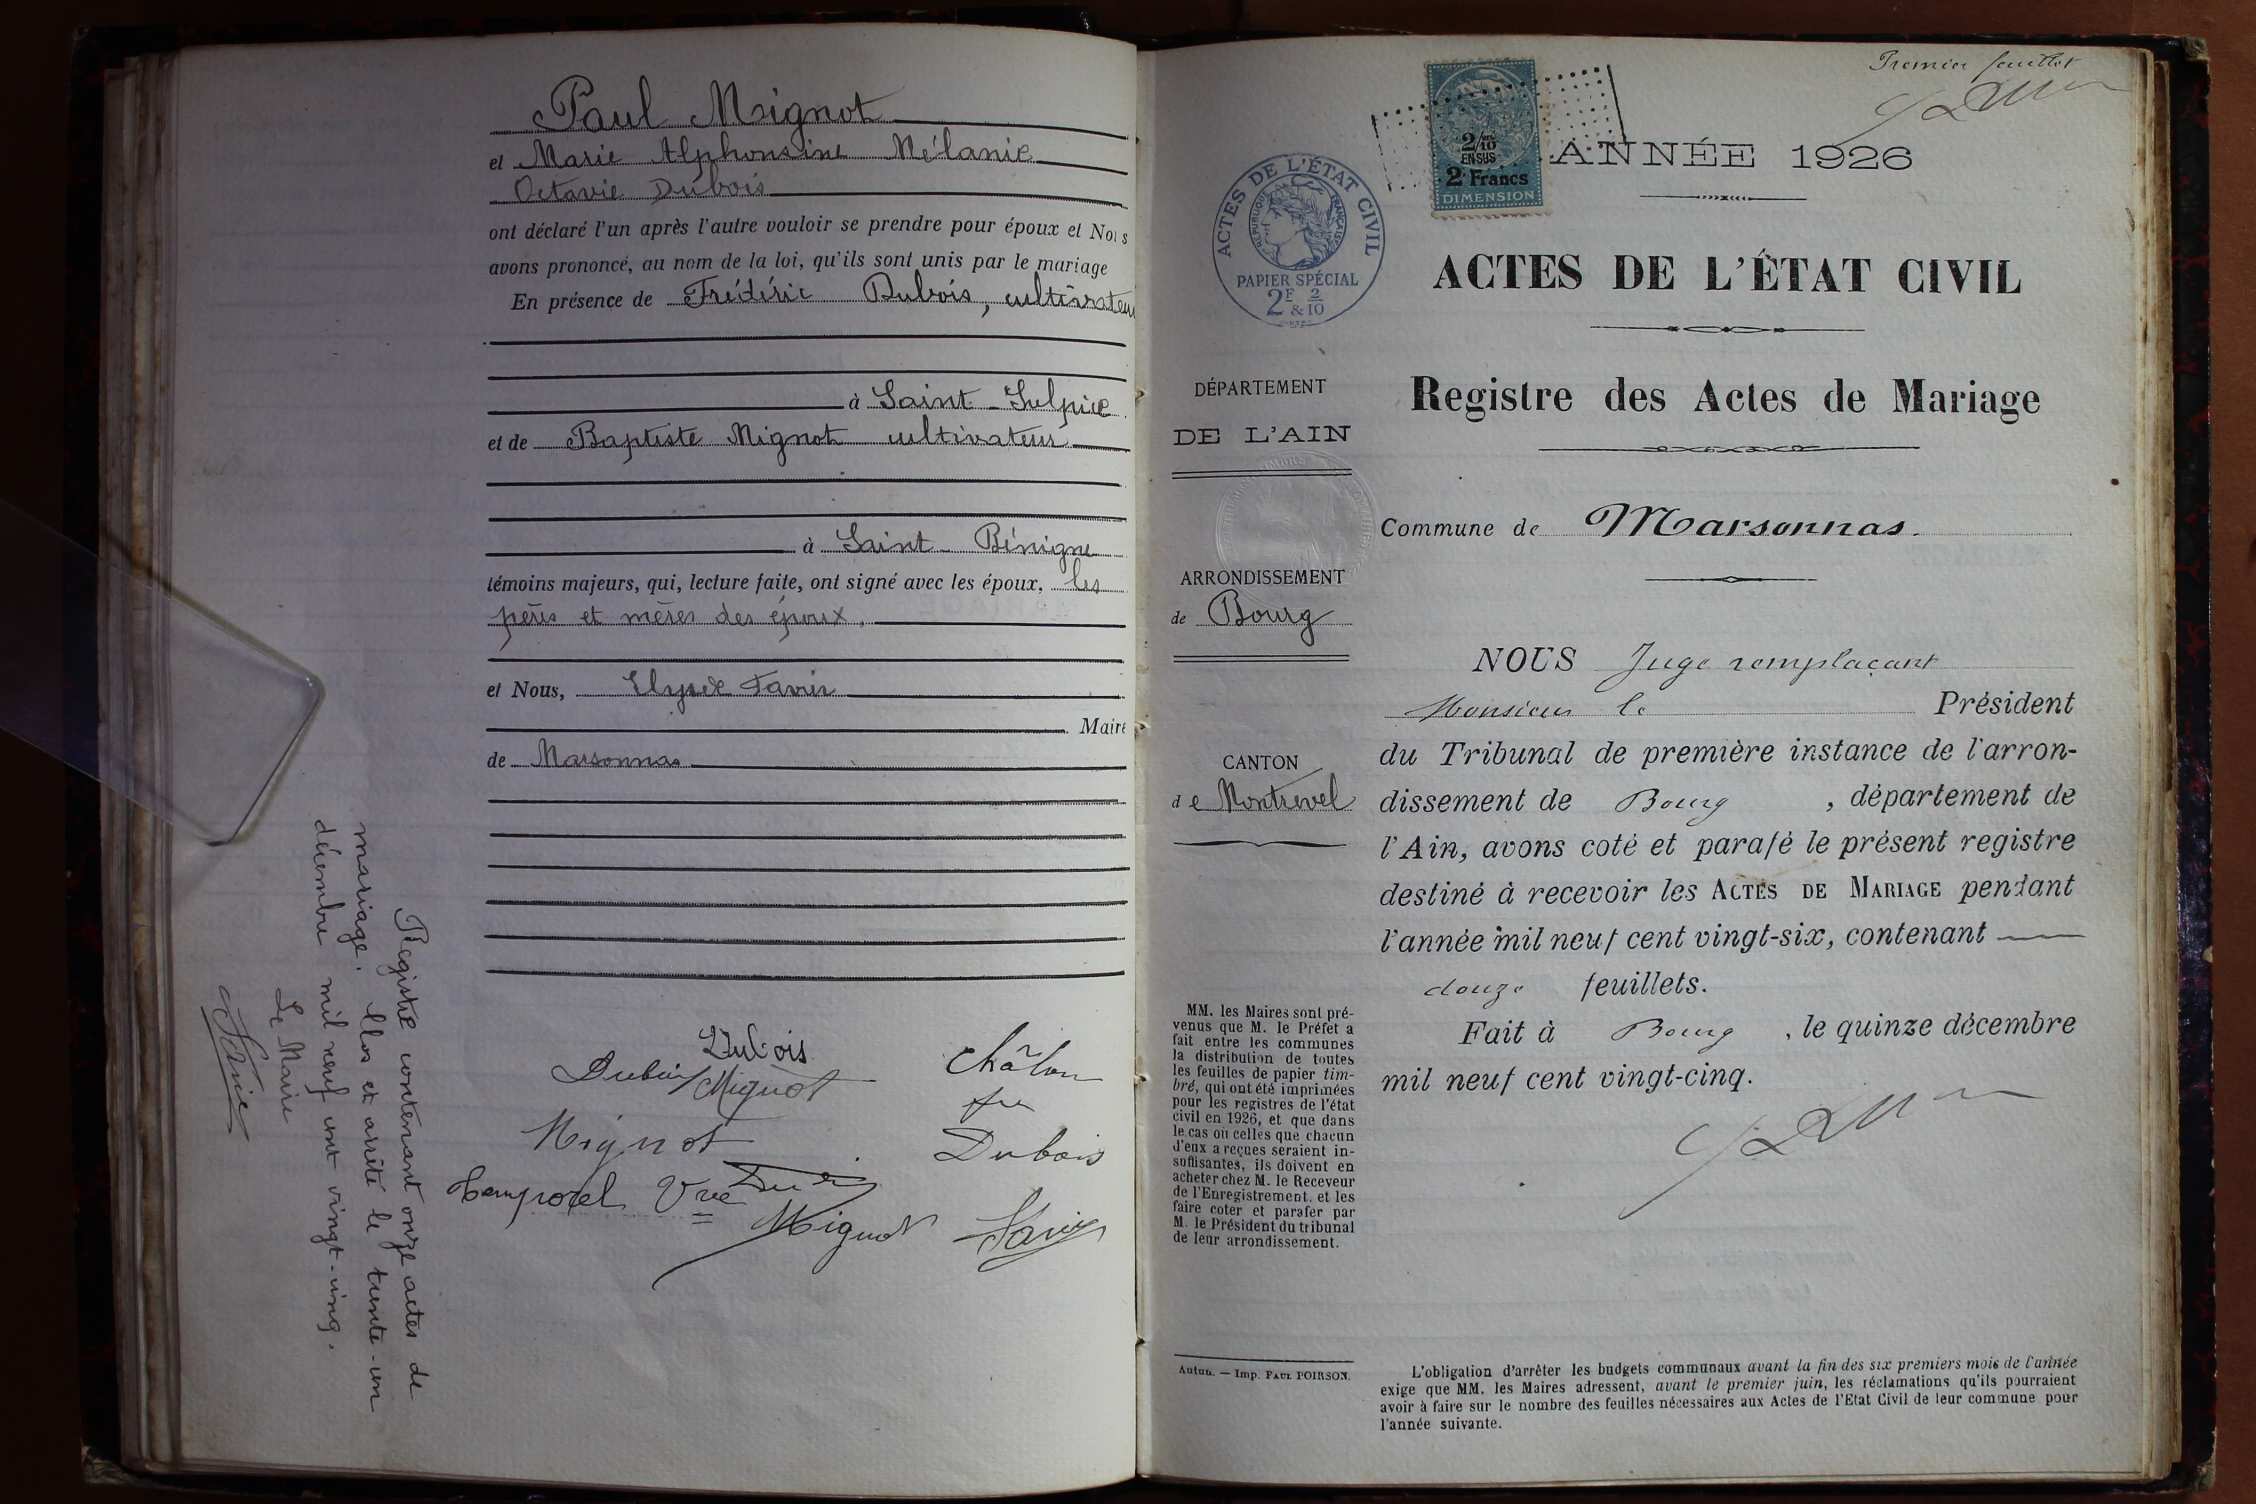 Paul Mignot
et Marie Alphonsine Mélanie
Octavie Dubois
ont déclaré l'un après l'autre vouloir se prendre pour époux et Nous
avons prononcé, au nom de la loi, qu'ils sont unis par le mariage
En présence de Frédéric Dubois, cultivateur
à Saint-Sulpice
et de Baptiste Mignot cultivateur
à Saint-Bénigne
témoins majeurs, qui, lecture faite, ont signé avec les époux, les
pères et mères des époux.
et Nous, Elysée Favier
Maire
de Marsonnas
Registre contenant onze actes de
mariage. Clos et arrêté le trente-un
décembre mil neuf cent vingt-cinq.
Le Maire
Dubois
Dubois
Mignot
Châlon
Mignot
Dubois
Vve
Mignot
Premier feuillet
2/10
EN SUS
2 Francs
DIMENSION
ANNÉE 1926
ACTES DE L'ÉTAT CIVIL
RÉPUBLIQUE FRANÇAISE
PAPIER SPÉCIAL
2F & 2/10
ACTES DE L'ÉTAT CIVIL
Registre des Actes de Mariage
DÉPARTEMENT
DE L'AIN
Commune de Marsonnas.
ARRONDISSEMENT
de Bourg
CANTON
de Montrevel
NOUS Juge remplaçant
Monsieur le Président
du Tribunal de première instance de l'arron-
dissement de Bourg, département de
l'Ain, avons coté et parafé le présent registre
destiné à recevoir les ACTES DE MARIAGE pendant
l'année mil neuf cent vingt-six, contenant
douze feuillets.
Fait à Bourg, le quinze décembre
mil neuf cent vingt-cinq.
MM. les Maires sont pré-
venus que M. le Préfet a
fait entre les communes
la distribution de toutes
les feuilles de papier tim-
bré, qui ont été imprimées
pour les registres de l'état
civil en 1926, et que dans
le cas où celles que chacun
d'eux a reçues seraient in-
suffisantes, ils doivent en
acheter chez M. le Receveur
de l'Enregistrement, et les
faire coter et parafer par
M. le Président du tribunal
de leur arrondissement.
Autun. — Imp. PAUL POIRSON.
L'obligation d'arrêter les budgets communaux avant la fin des six premiers mois de l'année
exige que MM. les Maires adressent, avant le premier juin, les réclamations qu'ils pourraient
avoir à faire sur le nombre des feuilles nécessaires aux Actes de l'Etat Civil de leur commune pour
l'année suivante.